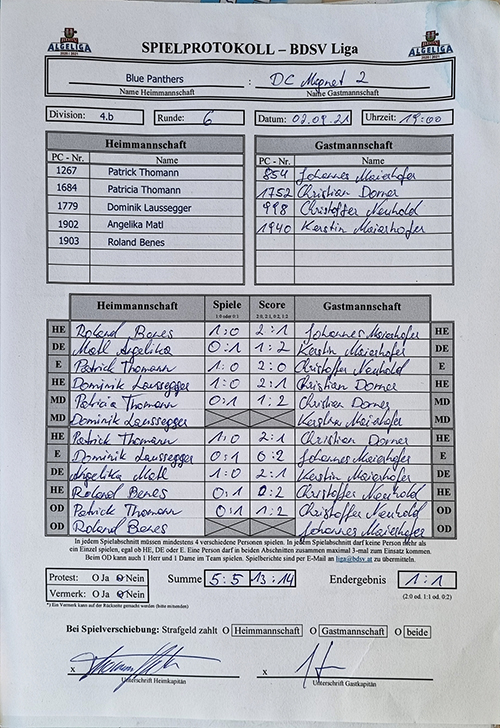 ALGELIGA
SPIELPROTOKOLL – BDSV Liga
ALGELIGA
Blue Panthers : DC Magnet 2
Name Heimmannschaft Name Gastmannschaft
Division: 4.b Runde: 6 Datum: 02.09.21 Uhrzeit: 19:00
Heimmannschaft Gastmannschaft
PC - Nr. Name PC - Nr. Name
1267 Patrick Thomann 854 Johannes Maierhofer
1684 Patricia Thomann 1752 Christian Dorner
1779 Dominik Laussegger 998 Christoffer Neuhold
1902 Angelika Matl 1940 Kerstin Maierhofer
1903 Roland Benes
Heimmannschaft Spiele Score Gastmannschaft
1:0 oder 0:1 2:0, 2:1, 0:2, 1:2
HE Roland Benes 1:0 2:1 Johannes Maierhofer HE
DE Matl Angelika 0:1 1:2 Kerstin Maierhofer DE
E Patrick Thomann 1:0 2:0 Christoffer Neuhold E
HE Dominik Laussegger 1:0 2:1 Christian Dorner HE
MD Patricia Thomann 0:1 1:2 Christian Dorner MD
MD Dominik Laussegger Kerstin Maierhofer MD
HE Patrick Thomann 1:0 2:1 Christian Dorner HE
E Dominik Laussegger 0:1 0:2 Johannes Maierhofer E
DE Angelika Matl 1:0 2:1 Kerstin Maierhofer DE
HE Roland Benes 0:1 0:2 Christoffer Neuhold HE
OD Patrick Thomann 0:1 1:2 Christoffer Neuhold OD
OD Roland Benes Johannes Maierhofer OD
In jedem Spielabschnitt müssen mindestens 4 verschiedene Personen spielen. In jedem Spielabschnitt darf keine Person mehr als
ein Einzel spielen, egal ob HE, DE oder E. Eine Person darf in beiden Abschnitten zusammen maximal 3-mal zum Einsatz kommen.
Beim OD kann auch 1 Herr und 1 Dame im Team spielen. Spielberichte sind per E-Mail an liga@bdsv.at zu übermitteln.
Protest: O Ja O Nein Summe 5:5 13:14 Endergebnis 1:1
Vermerk: O Ja O Nein (2:0 od. 1:1 od. 0:2)
*) Ein Vermerk kann auf der Rückseite gemacht werden (bitte mitsenden)
Bei Spielverschiebung: Strafgeld zahlt O Heimmannschaft O Gastmannschaft O beide
x x
Unterschrift Heimkapitän Unterschrift Gastkapitän